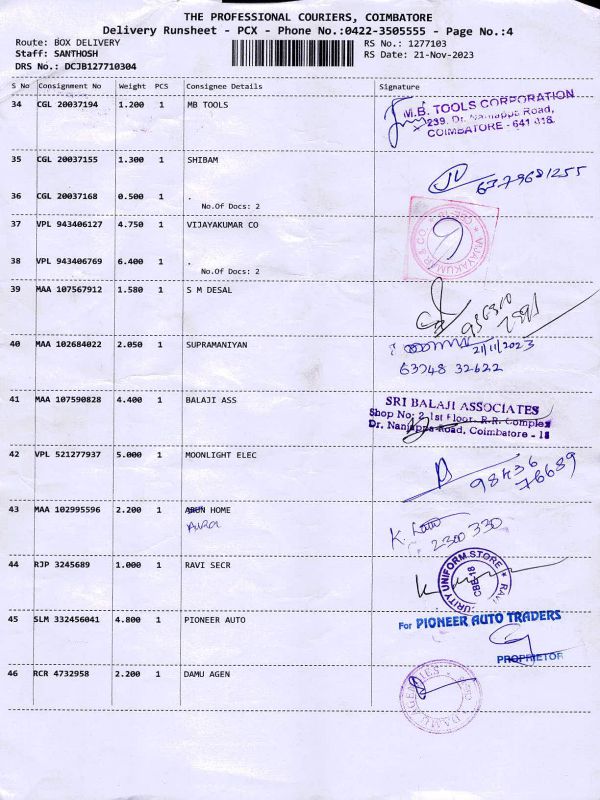 THE PROFESSIONAL COURIERS, COIMBATORE
Delivery Runsheet - PCX - Phone No.:0422-3505555 - Page No.:4
Route: BOX DELIVERY RS No.: 1277103
Staff: SANTHOSH RS Date: 21-Nov-2023
DRS No.: DCJB127710304
S No Consignment No Weight PCS Consignee Details Signature
34 CGL 20037194 1.200 1 MB TOOLS
M.B. TOOLS CORPORATION
239, Dr. Nanjappa Road,
COIMBATORE - 641 018.
35 CGL 20037155 1.300 1 SHIBAM
6379681255
36 CGL 20037168 0.500 1 .
No.Of Docs: 2
37 VPL 943406127 4.750 1 VIJAYAKUMAR CO
VIJAYAKUMAR & CO.
38 VPL 943406769 6.400 1 .
No.Of Docs: 2
39 MAA 107567912 1.580 1 S M DESAL
40 MAA 102684022 2.050 1 SUPRAMANIYAN
21/11/2023
63748 32622
41 MAA 107590828 4.400 1 BALAJI ASS
SRI BALAJI ASSOCIATES
Shop No: 2 1st Floor, R.R. Complex
Dr. Nanjappa Road, Coimbatore - 18
42 VPL 521277937 5.000 1 MOONLIGHT ELEC
98436
76689
43 MAA 102995596 2.200 1 ARUN HOME
AURA
2300 330
44 RJP 3245689 1.000 1 RAVI SECR
RAVI SECURITY UNIFORM STORE
CBE-18
45 SLM 332456041 4.800 1 PIONEER AUTO
For PIONEER AUTO TRADERS
PROPRIETOR
46 RCR 4732958 2.200 1 DAMU AGEN
DAMU AGENCIES